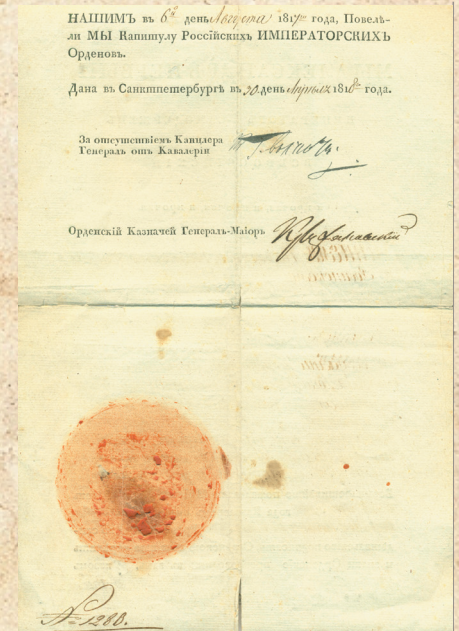 НАШИМЪ въ 6й день Августа 1817го года, Повелѣ-
ли МЫ Капитулу Россійскихъ ИМПЕРАТОРСКИХЪ
Орденовъ.
Дана въ Санктпетербургѣ въ 30 день Апрѣля 1818го года.
За отсутствіемъ Канцлера
Генералъ отъ Кавалеріи
Орденскій Казначей Генералъ-Маіоръ
№ 1288.